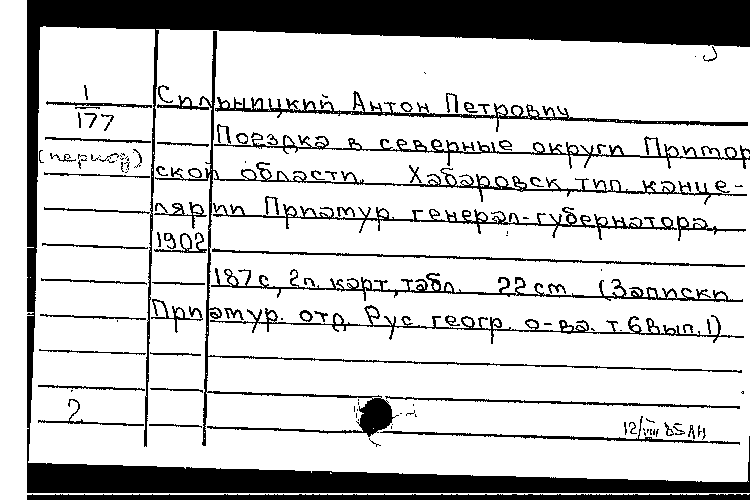 1/177
Сильницкий Антон Петрович
Поездка в северные округи Примор
(период)
ской области. Хабаровск, тип. канце-
лярии Приамур. генерал-губернатора,
1902
187с, 2л. карт, табл. 22 cm. (Записки
Приамур. отд. Рус. геогр. о-ва. т.6 Вып.1)
2
12/VIII 85 АН